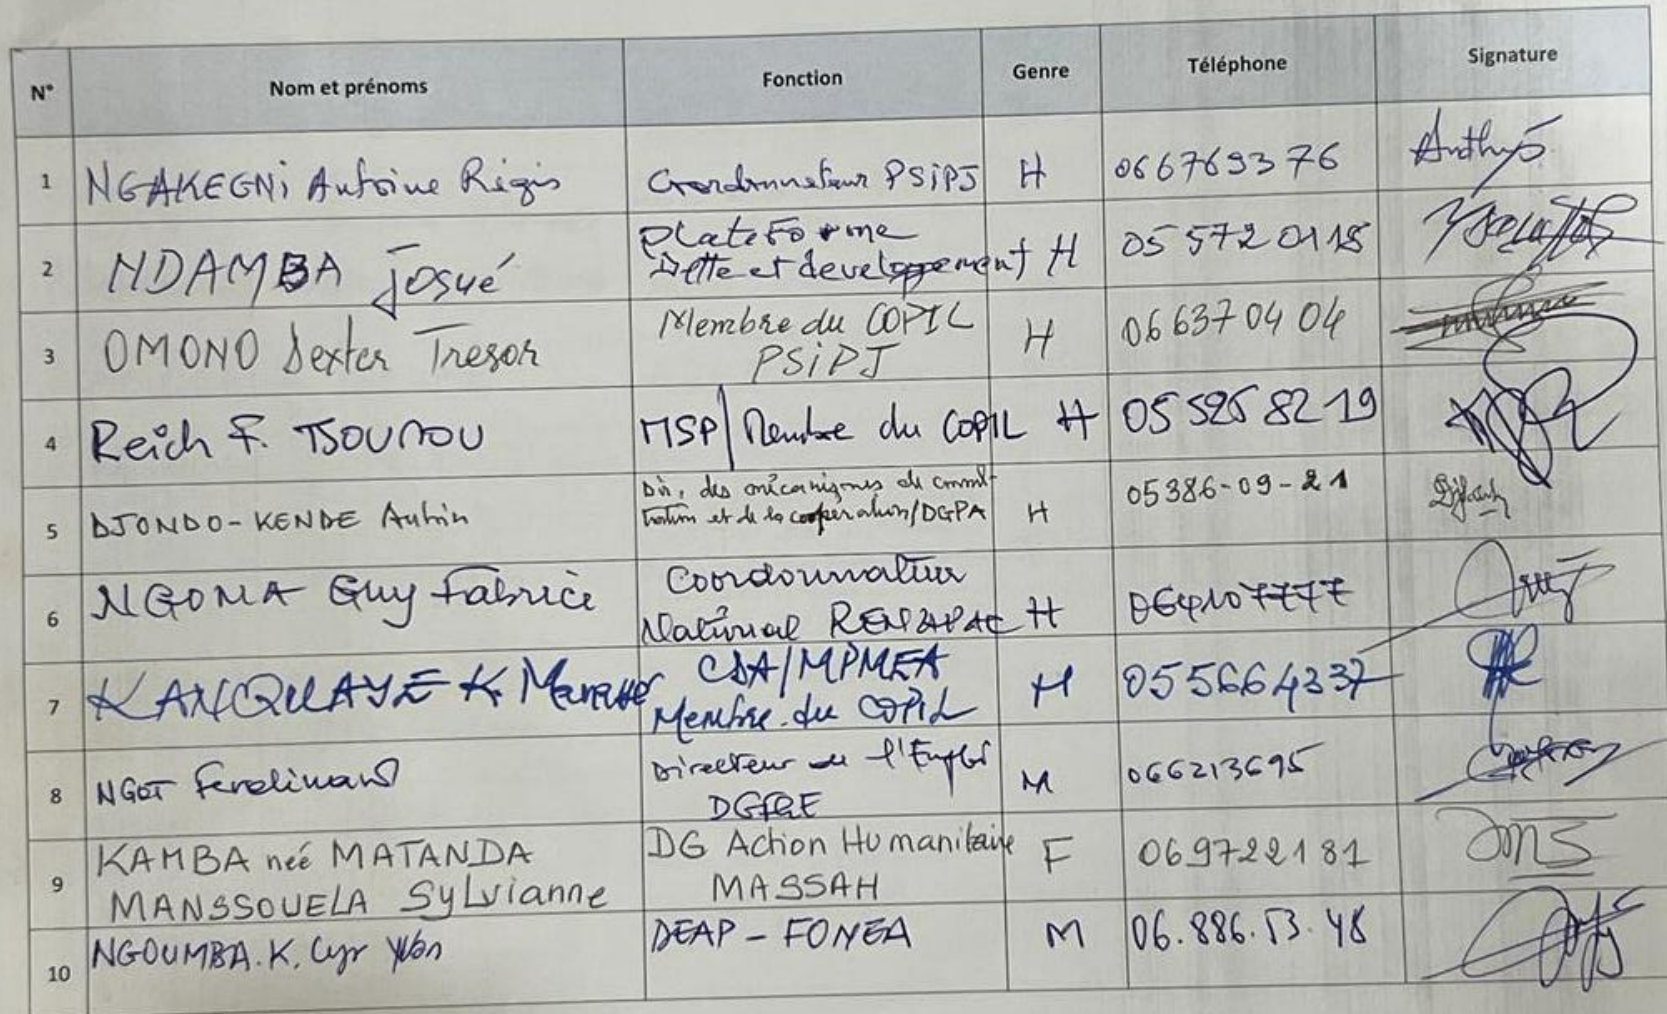 N° Nom et prénoms Fonction Genre Téléphone Signature
1 NGAKEGNi Antoine Régis Coordonnateur PSiPJ H 066769376
2 NDAMBA Josué Plateforme Dette et developpement H 05 572 0118
3 OMONO Dexter Tresor Membre du COPIL PSiPJ H 06 637 04 04
4 Reich F. TSOUMOU MSP/Membre du COPIL H 05 525 82 19
5 DJONDO-KENDE Aubin Dir, des mécanismes de et de la cooperation/DGPA H 05386-09-21
6 NGOMA Guy Fabrice Coordonnateur National H 064107777
7 K. CDA/MPMEA Membre du COPIL H 055664337
8 NGOT Ferdinand Directeur de l'Emploi M 066213695
9 KAMBA neé MATANDA MANSSOUELA Sylvianne DG Action Humanitaire MASSAH F 069722181
10 NGOUMBA.K. Cyr Yvon DEAP - FONEA M 06.886.53.48